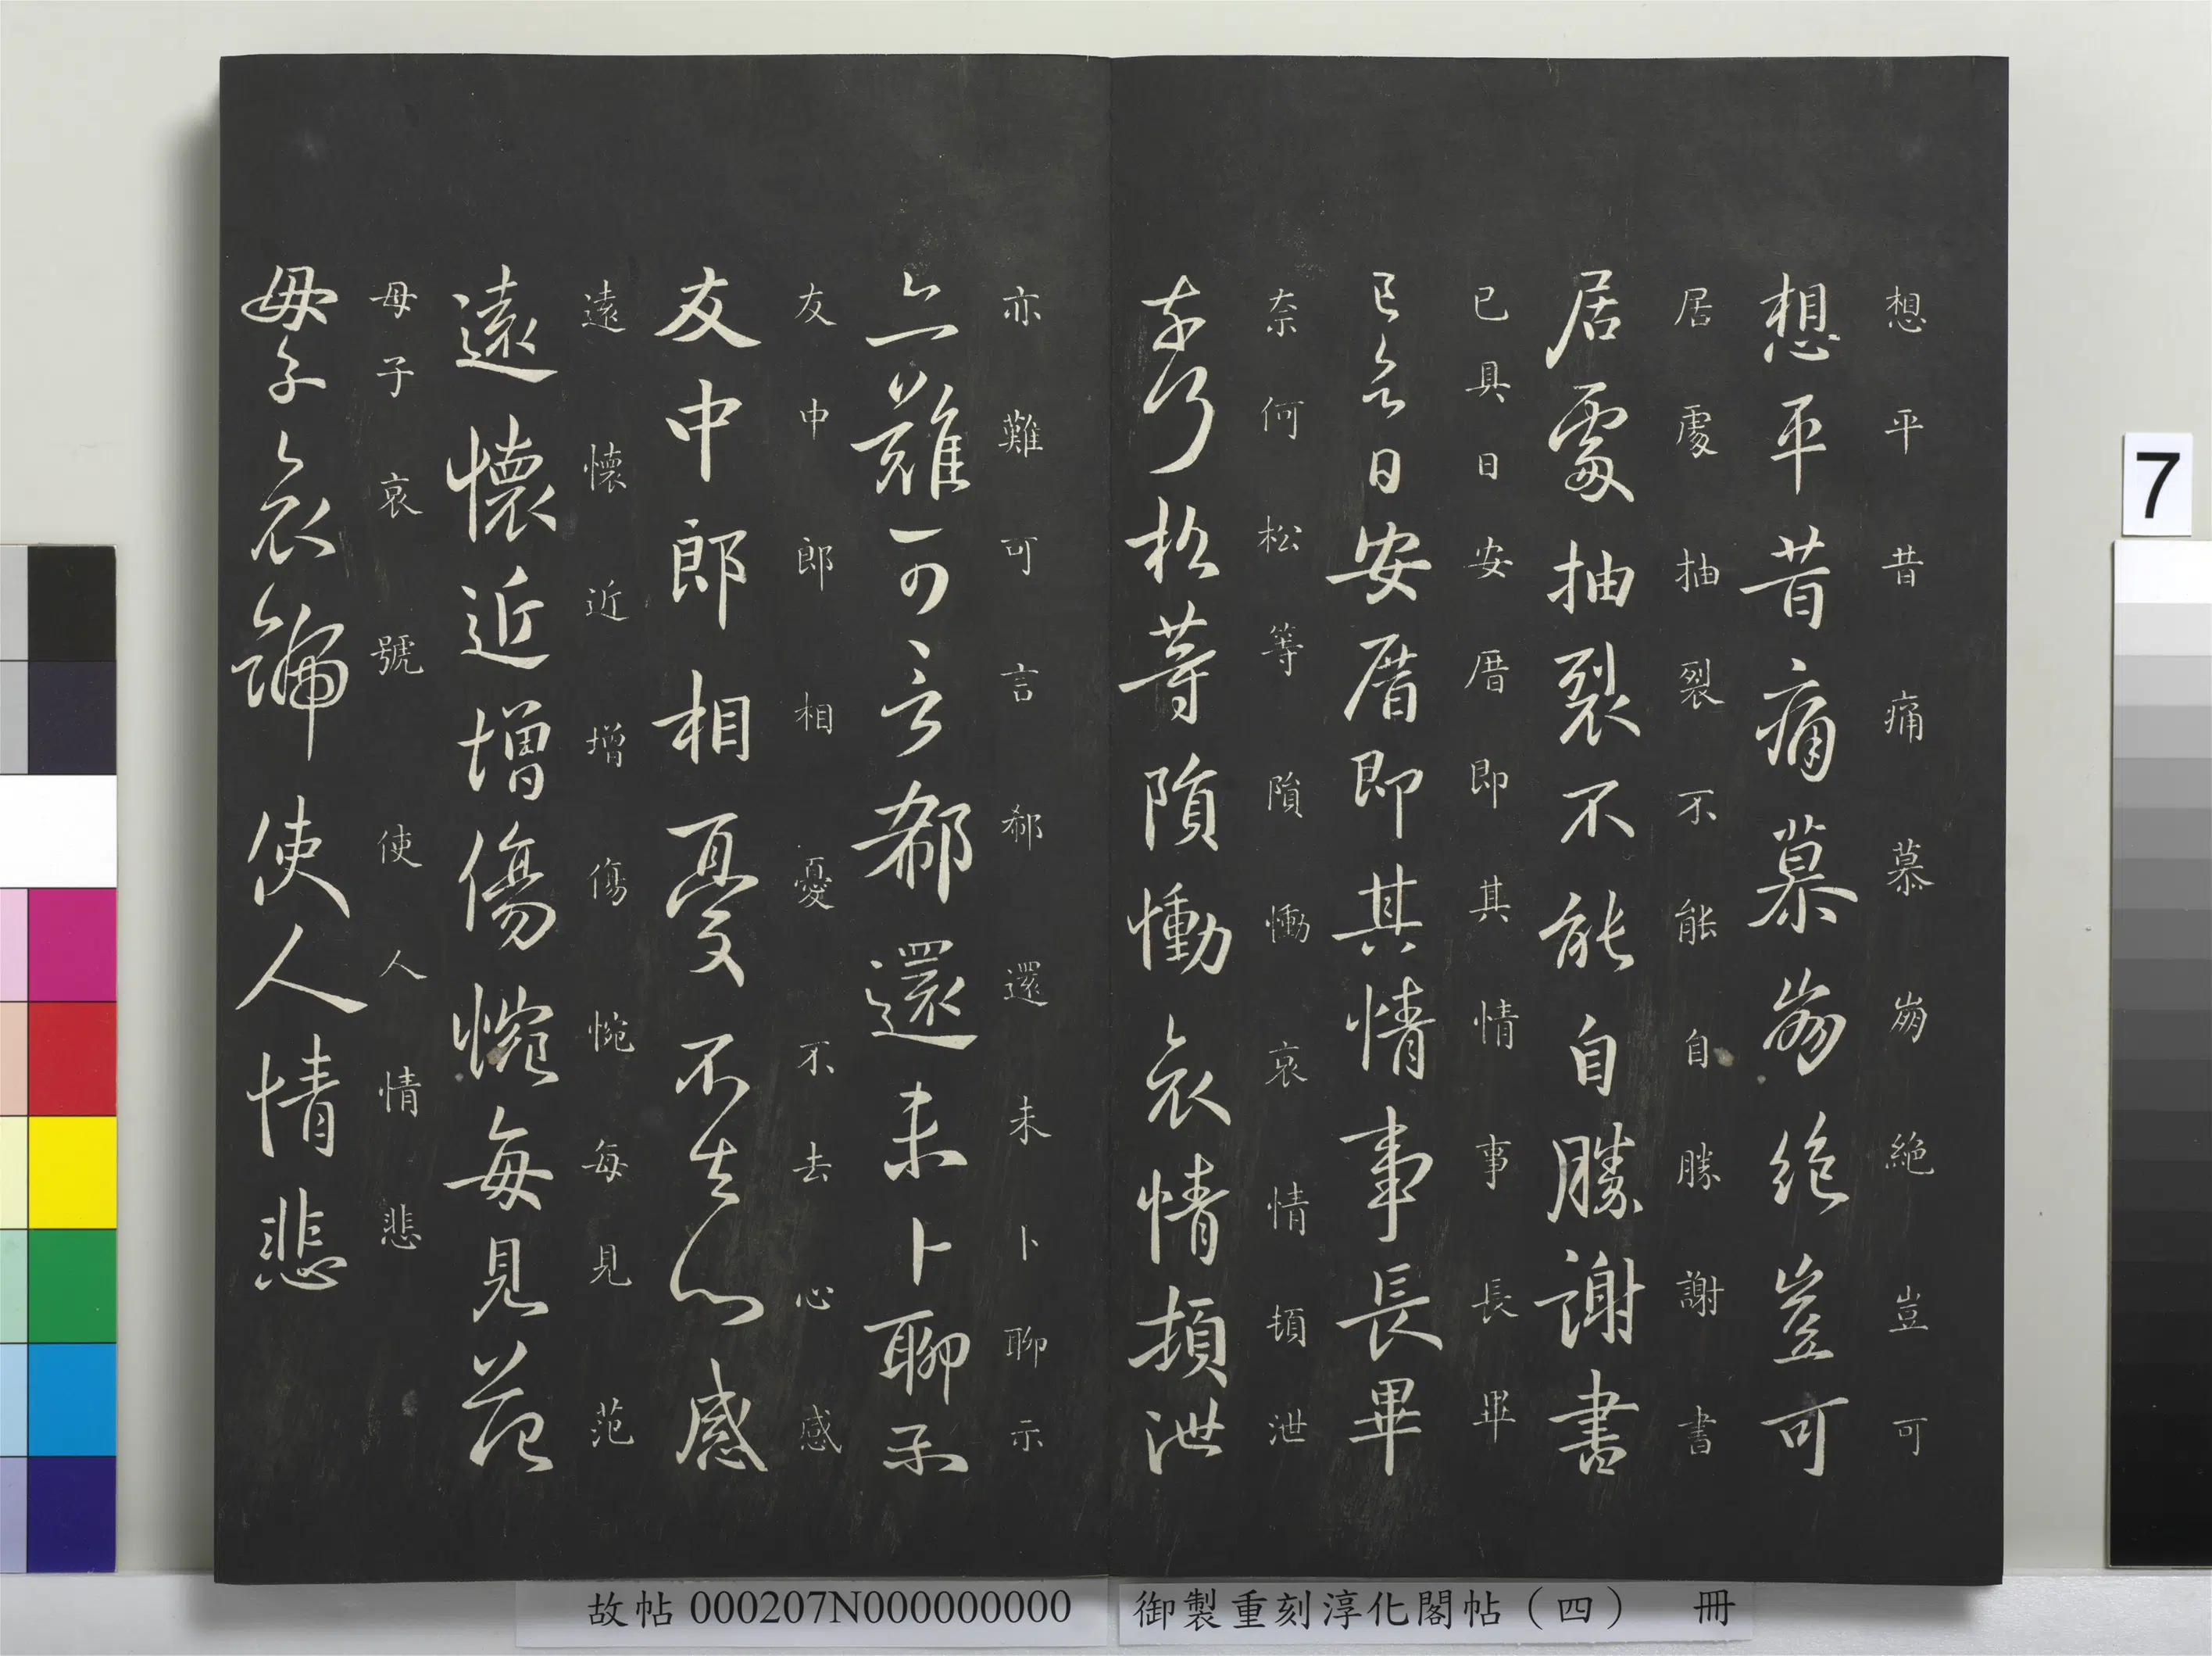 想平昔痛慕崩絶豈可
想平昔痛慕崩絶豈可
居處抽裂不能自勝謝書
居處抽裂不能自勝謝書
已具日安厝即其情事長畢
已具日安厝即其情事長畢
奈何松等隕慟哀情頓泄
奈何松等隕慟哀情頓泄
亦難可言郗還未卜聊示
亦難可言郗還未卜聊示
友中郎相憂不去心感
友中郎相憂不去心感
遠懷近增傷惋每見范
遠懷近增傷惋每見范
母子哀號使人情悲
母子哀號使人情悲
7
故帖 000207N000000000
御製重刻淳化閣帖（四） 冊